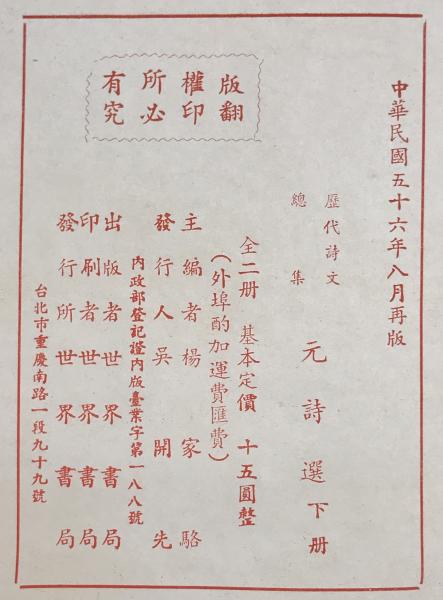 中華民國五十六年八月再版
歷代詩文
總集
元詩選下册
全二册 基本定價 十五圓整
(外埠酌加運費匯費)
主編者楊家駱
發行人吳開先
內政部登記證內版臺業字第一八八號
出版者世界書局
印刷者世界書局
發行所世界書局
台北市重慶南路一段九十九號
版權所有
翻印必究